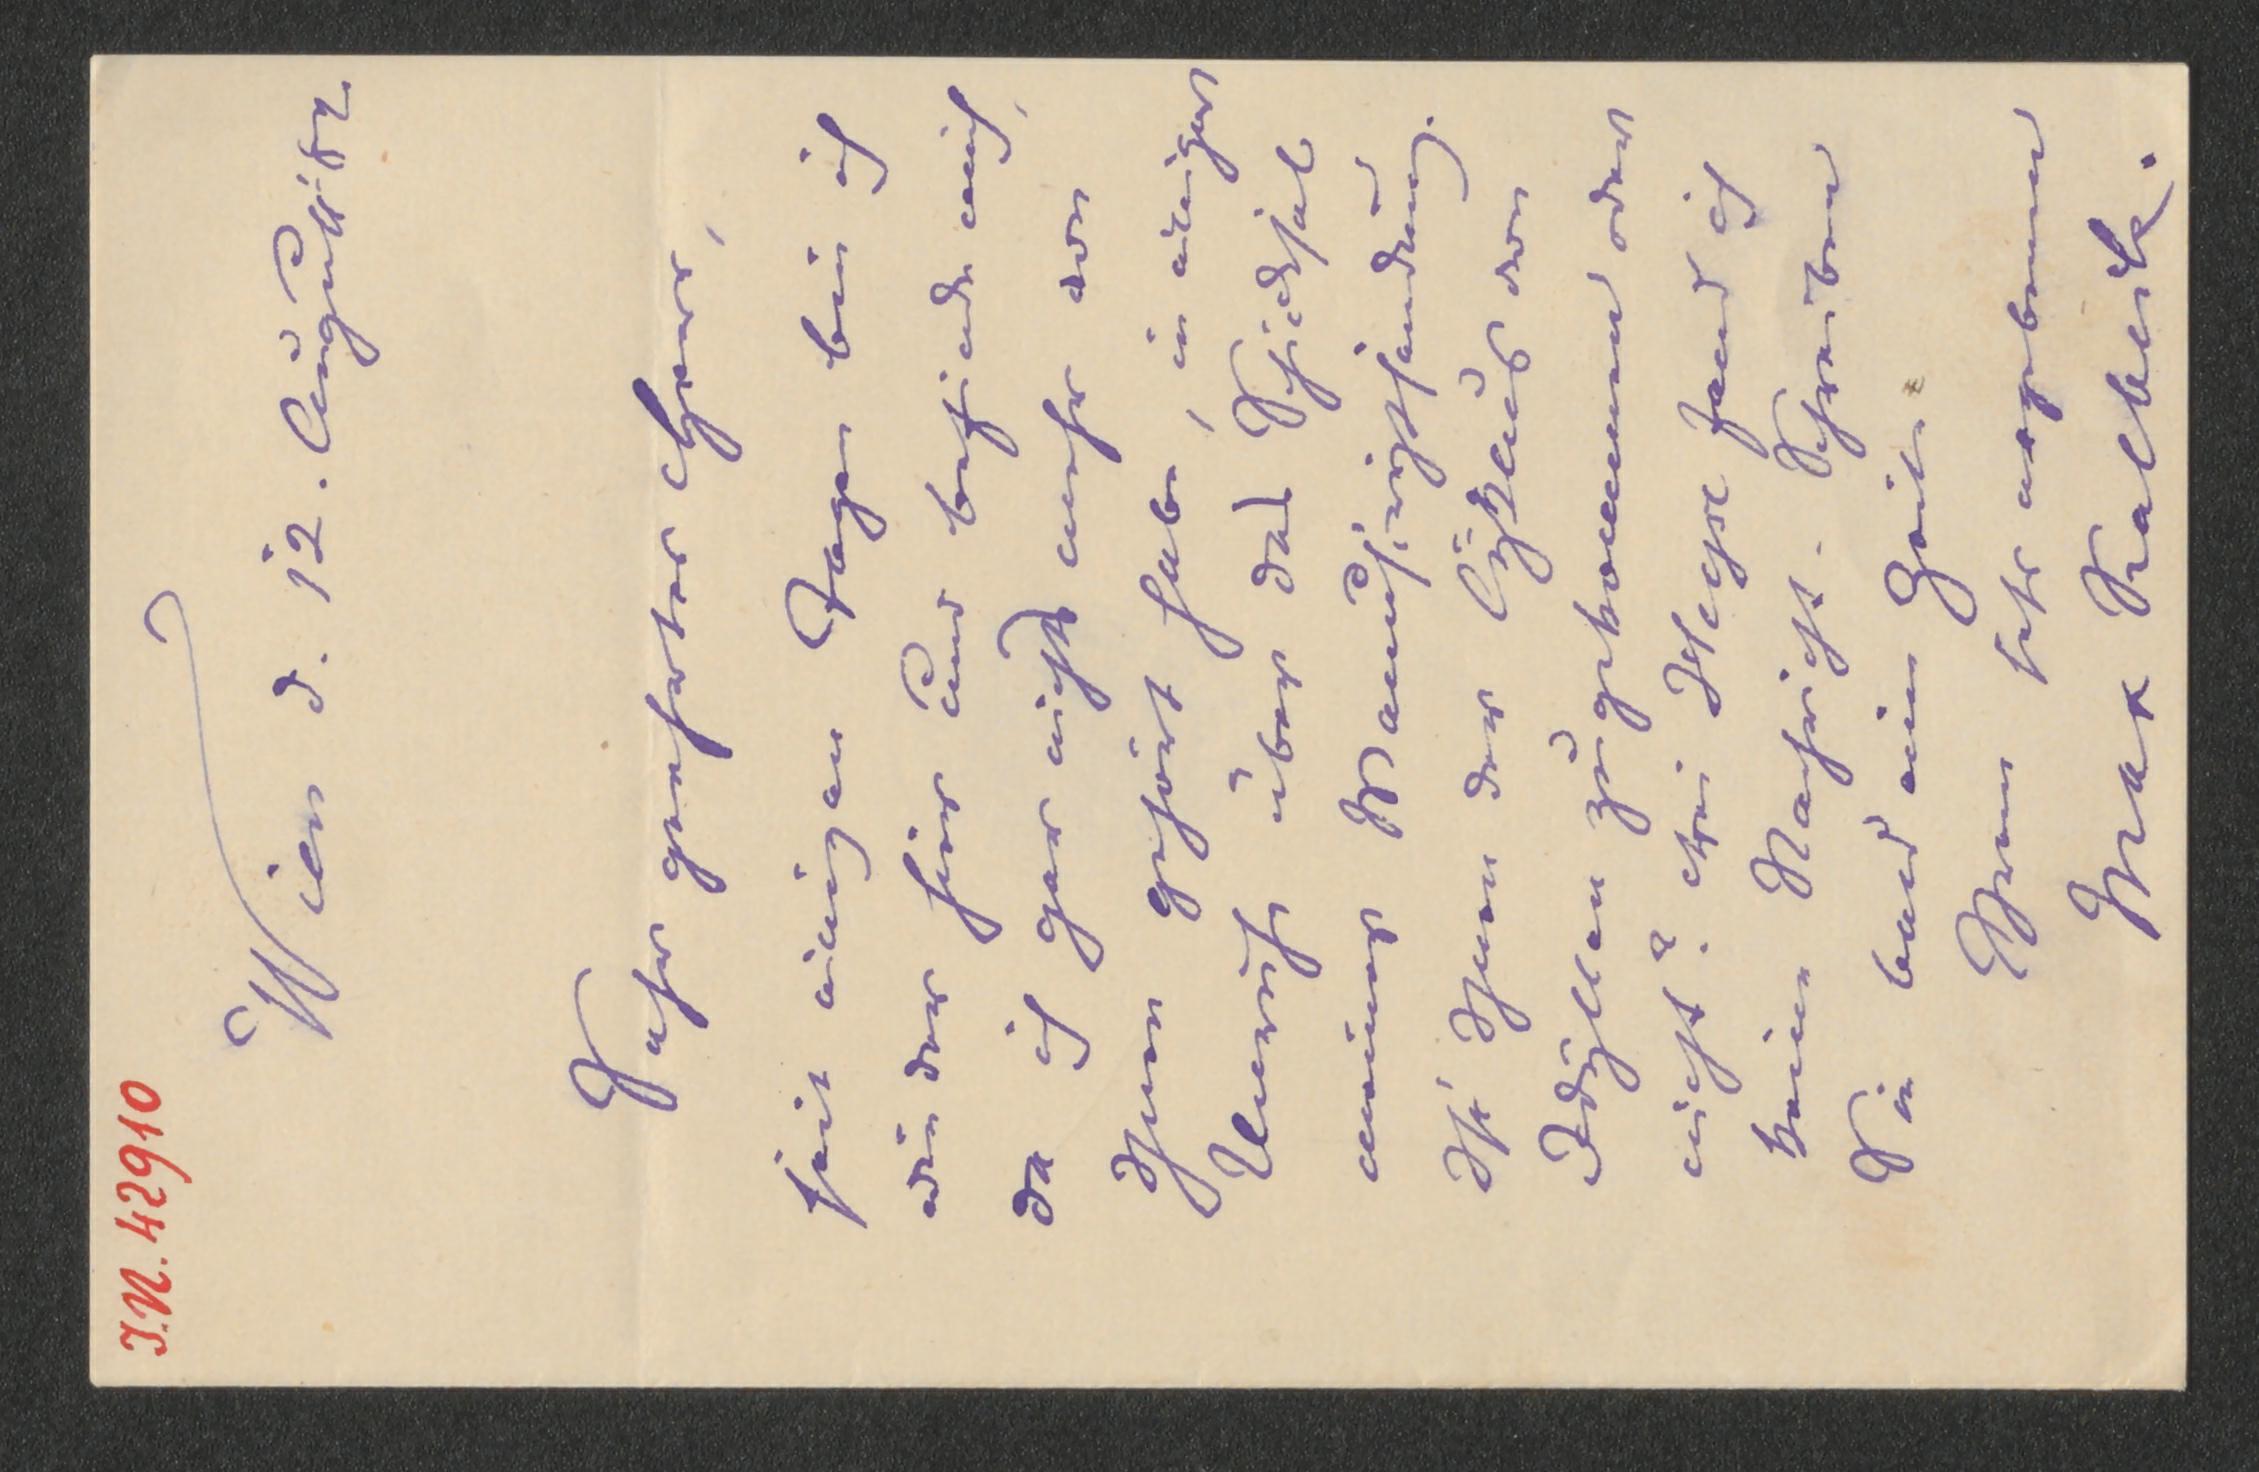 J.N. 42910
Wien d. 12. August 82
Sehr geehrter Herr,
seit einigen Tagen bin ich
wieder hier und befinde mich,
da ich gar nichts mehr von
Ihnen gehört habe, in einiger
Unruh über das Schicksal
meiner Manuscriptsendung.
Ist Ihnen der Cyklus von
Idyllen zugekommen oder
nicht? Bei Heyse fand ich
keine Nachricht. Schreiben
Sie bald eine Zeile
Ihrem sehr ergebenen
Max Kalbeck.